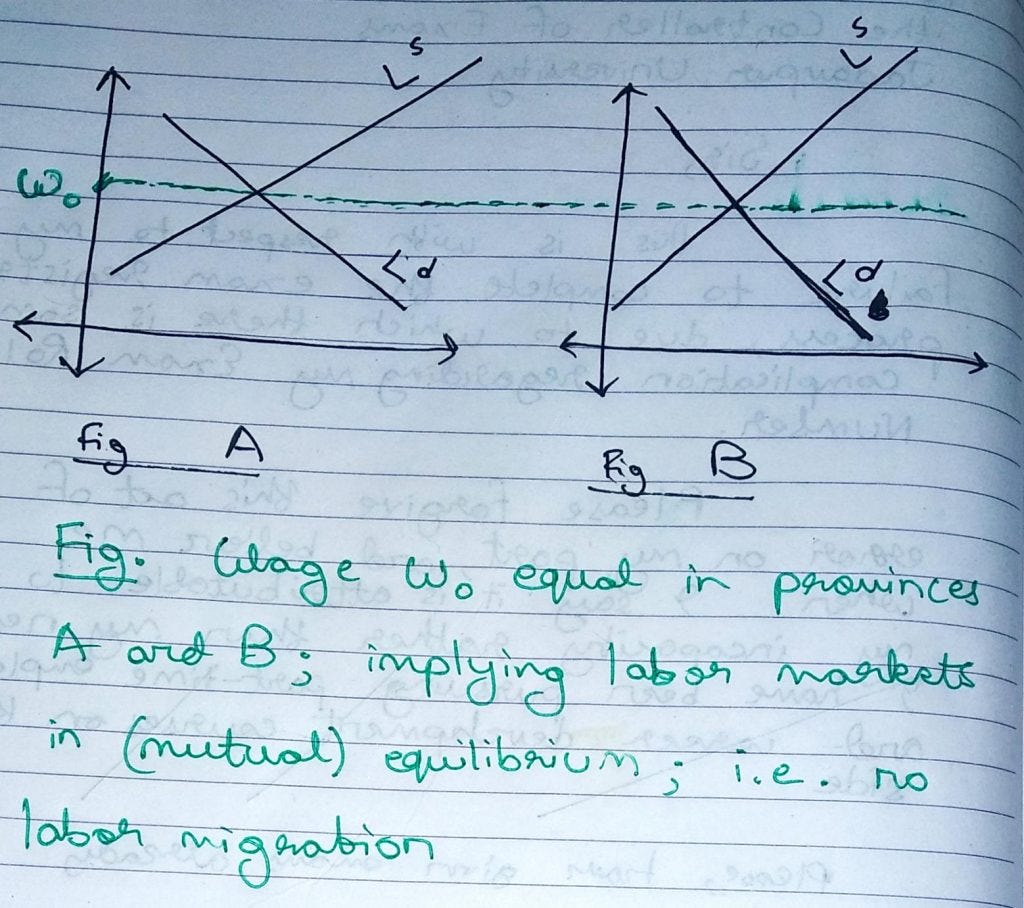 L^s
L^s
W₀
L^d
L^d
Fig A
Fig B
Fig. Wage W₀ equal in provinces
A and B; implying labor markets
in (mutual) equilibrium; i.e. no
labor migration